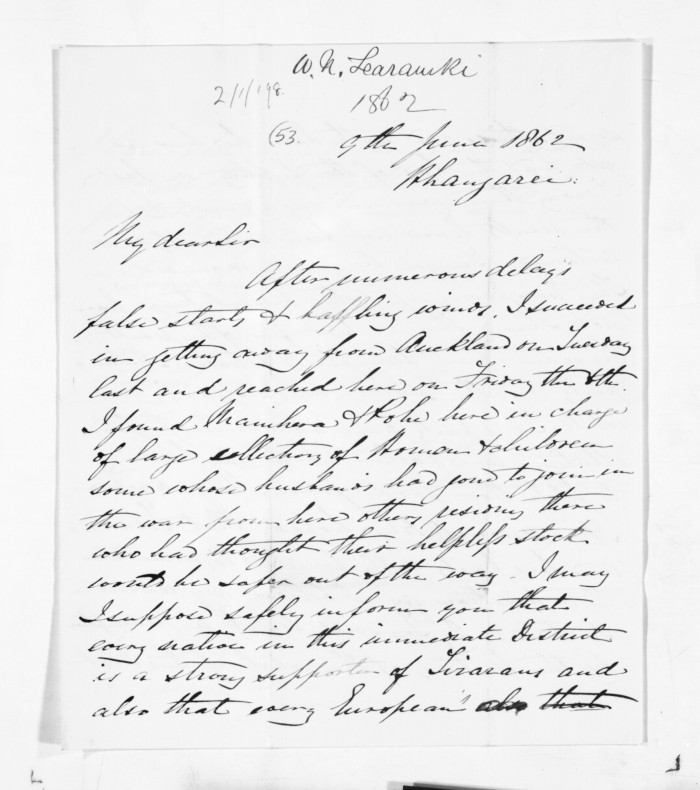 W. N. Searancke
1862
2/1/98.
(53.
9th June 1862
Whangarei.
My dear Sir
After numerous delays
false starts & baffling winds, I succeeded
in getting away from Auckland on Tuesday
last and reached here on Friday the 6th.
I found & here in charge
of large collection of Women & children
some whose husbands had gone to join in
the war from here others residing there
who had thought their helpless stock
would be safer out of the way. I may
I suppose safely inform you that
every native in this immediate District
is a strong supporter of Tirarau and
also that every European also that